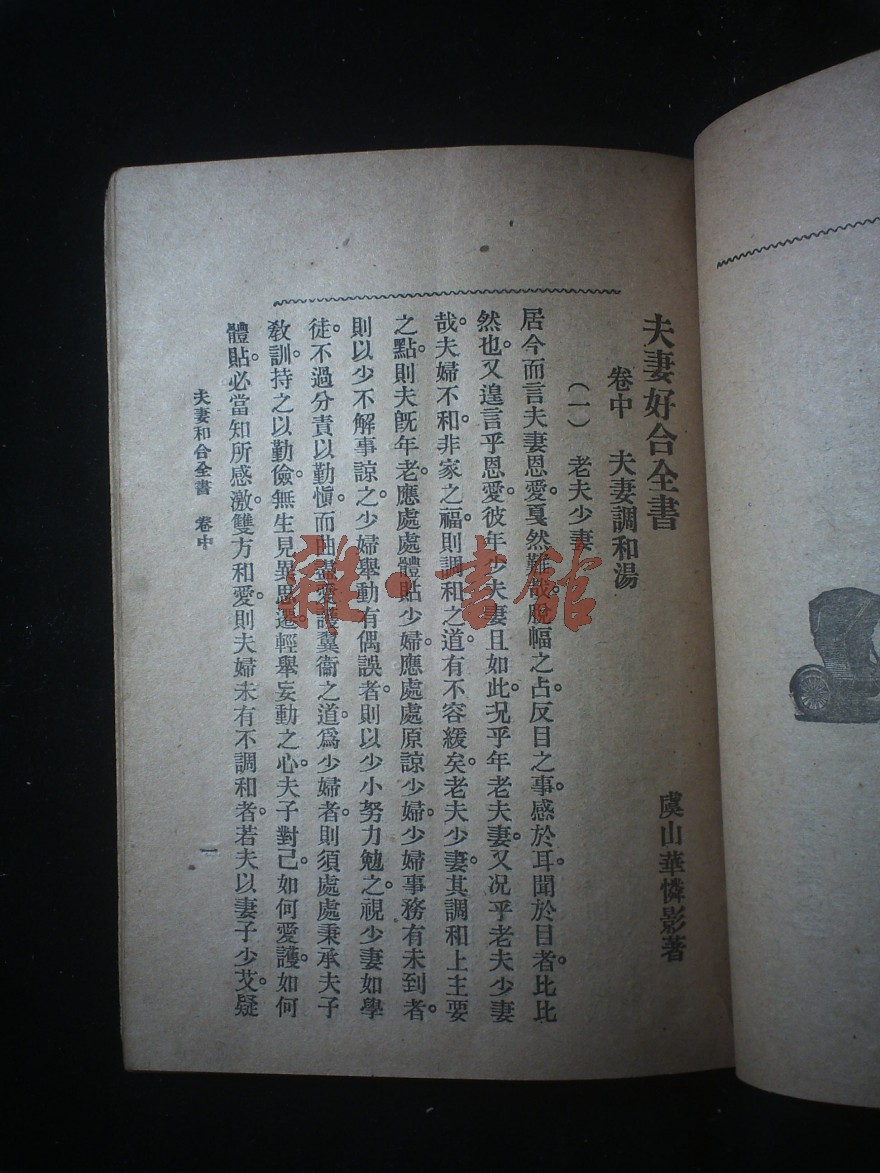 夫妻好合全書
虞山華憐影著
卷中　夫妻調和湯
（一）　老夫少妻
居今而言夫妻恩愛。戛然難哉。脫幅之占。反目之事。感於耳聞於目者。比比
然也。又遑言乎恩愛。彼年少夫妻且如此。况乎年老夫妻。又况乎老夫少妻
哉。夫婦不和。非家之福。則調和之道。有不容緩矣。老夫少妻。其調和上主要
之點。則夫旣年老。應處處體貼少婦。應處處原諒少婦。少婦事務有未到者。
則以少不解事諒之。少婦舉動有偶誤者。則以少小努力勉之。視少妻如學
徒。不過分責以勤愼。而曲盡愛護翼衞之道。爲少婦者。則須處處秉承夫子
敎訓。持之以勤儉。無生見異思遷。輕舉妄動之心。夫子對己。如何愛護。如何
體貼。必當知所感激。雙方和愛。則夫婦未有不調和者。若夫以妻子少艾。疑
夫妻和合全書　卷中
一
雜·書館